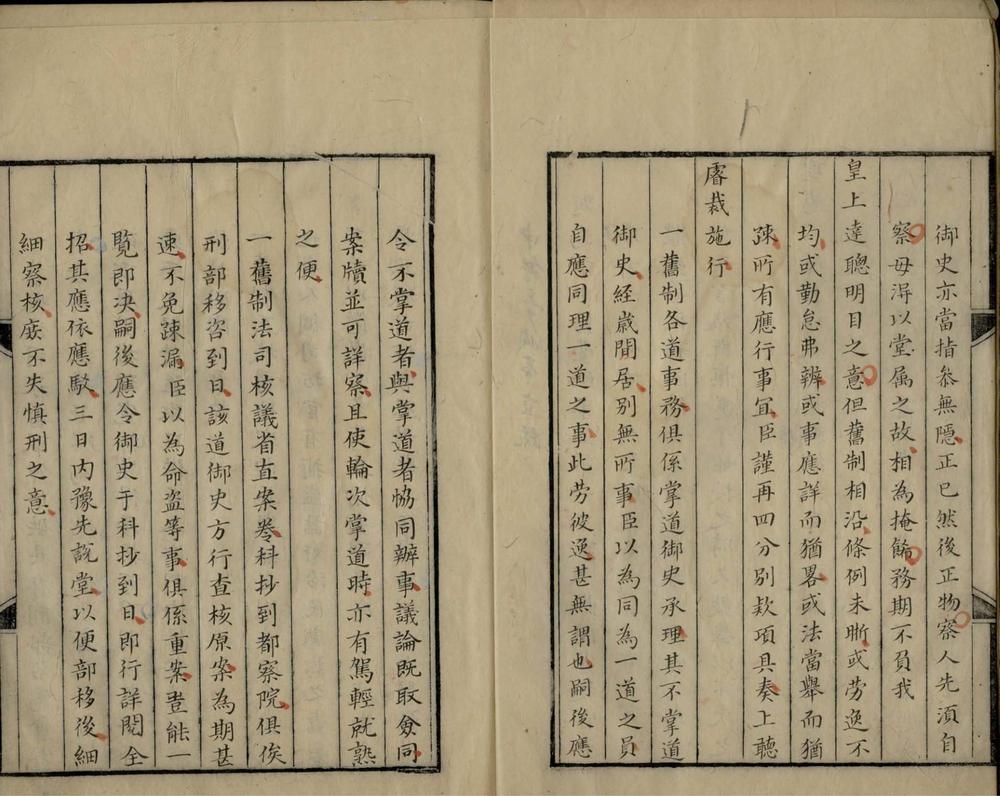 御史亦當指叅無隱正已然後正物察人先湏自
察毋淂以堂属之故相為掩餙務期不負我
皇上達聰明目之意但舊制相沿條例未晰或劳逸不
均或勤怠弗辨或事應詳而猶畧或法當舉而猶
疎所有應行事冝臣謹再四分別欵項具奏上聽
睿裁施行
一舊制各道事務俱係掌道御史承理其不掌道
御史経歳閒居别無所事臣以為同為一道之員
自應同理一道之事此劳彼逸甚無謂也嗣後應
令不掌道者與掌道者恊同辦事議論既取僉同
案牘並可詳察且使輪次掌道時亦有駕輕就熟
之便
一舊制法司核議省直案卷科抄到都察院俱俟
刑部移咨到日該道御史方行查核原案為期甚
速不免疎漏臣以為命盗等事俱係重案豈能一
覧即决嗣後應令御史于科抄到日即行詳閲全
招其應依應駁三日内豫先說堂以便部移後細
細察核庻不失慎刑之意